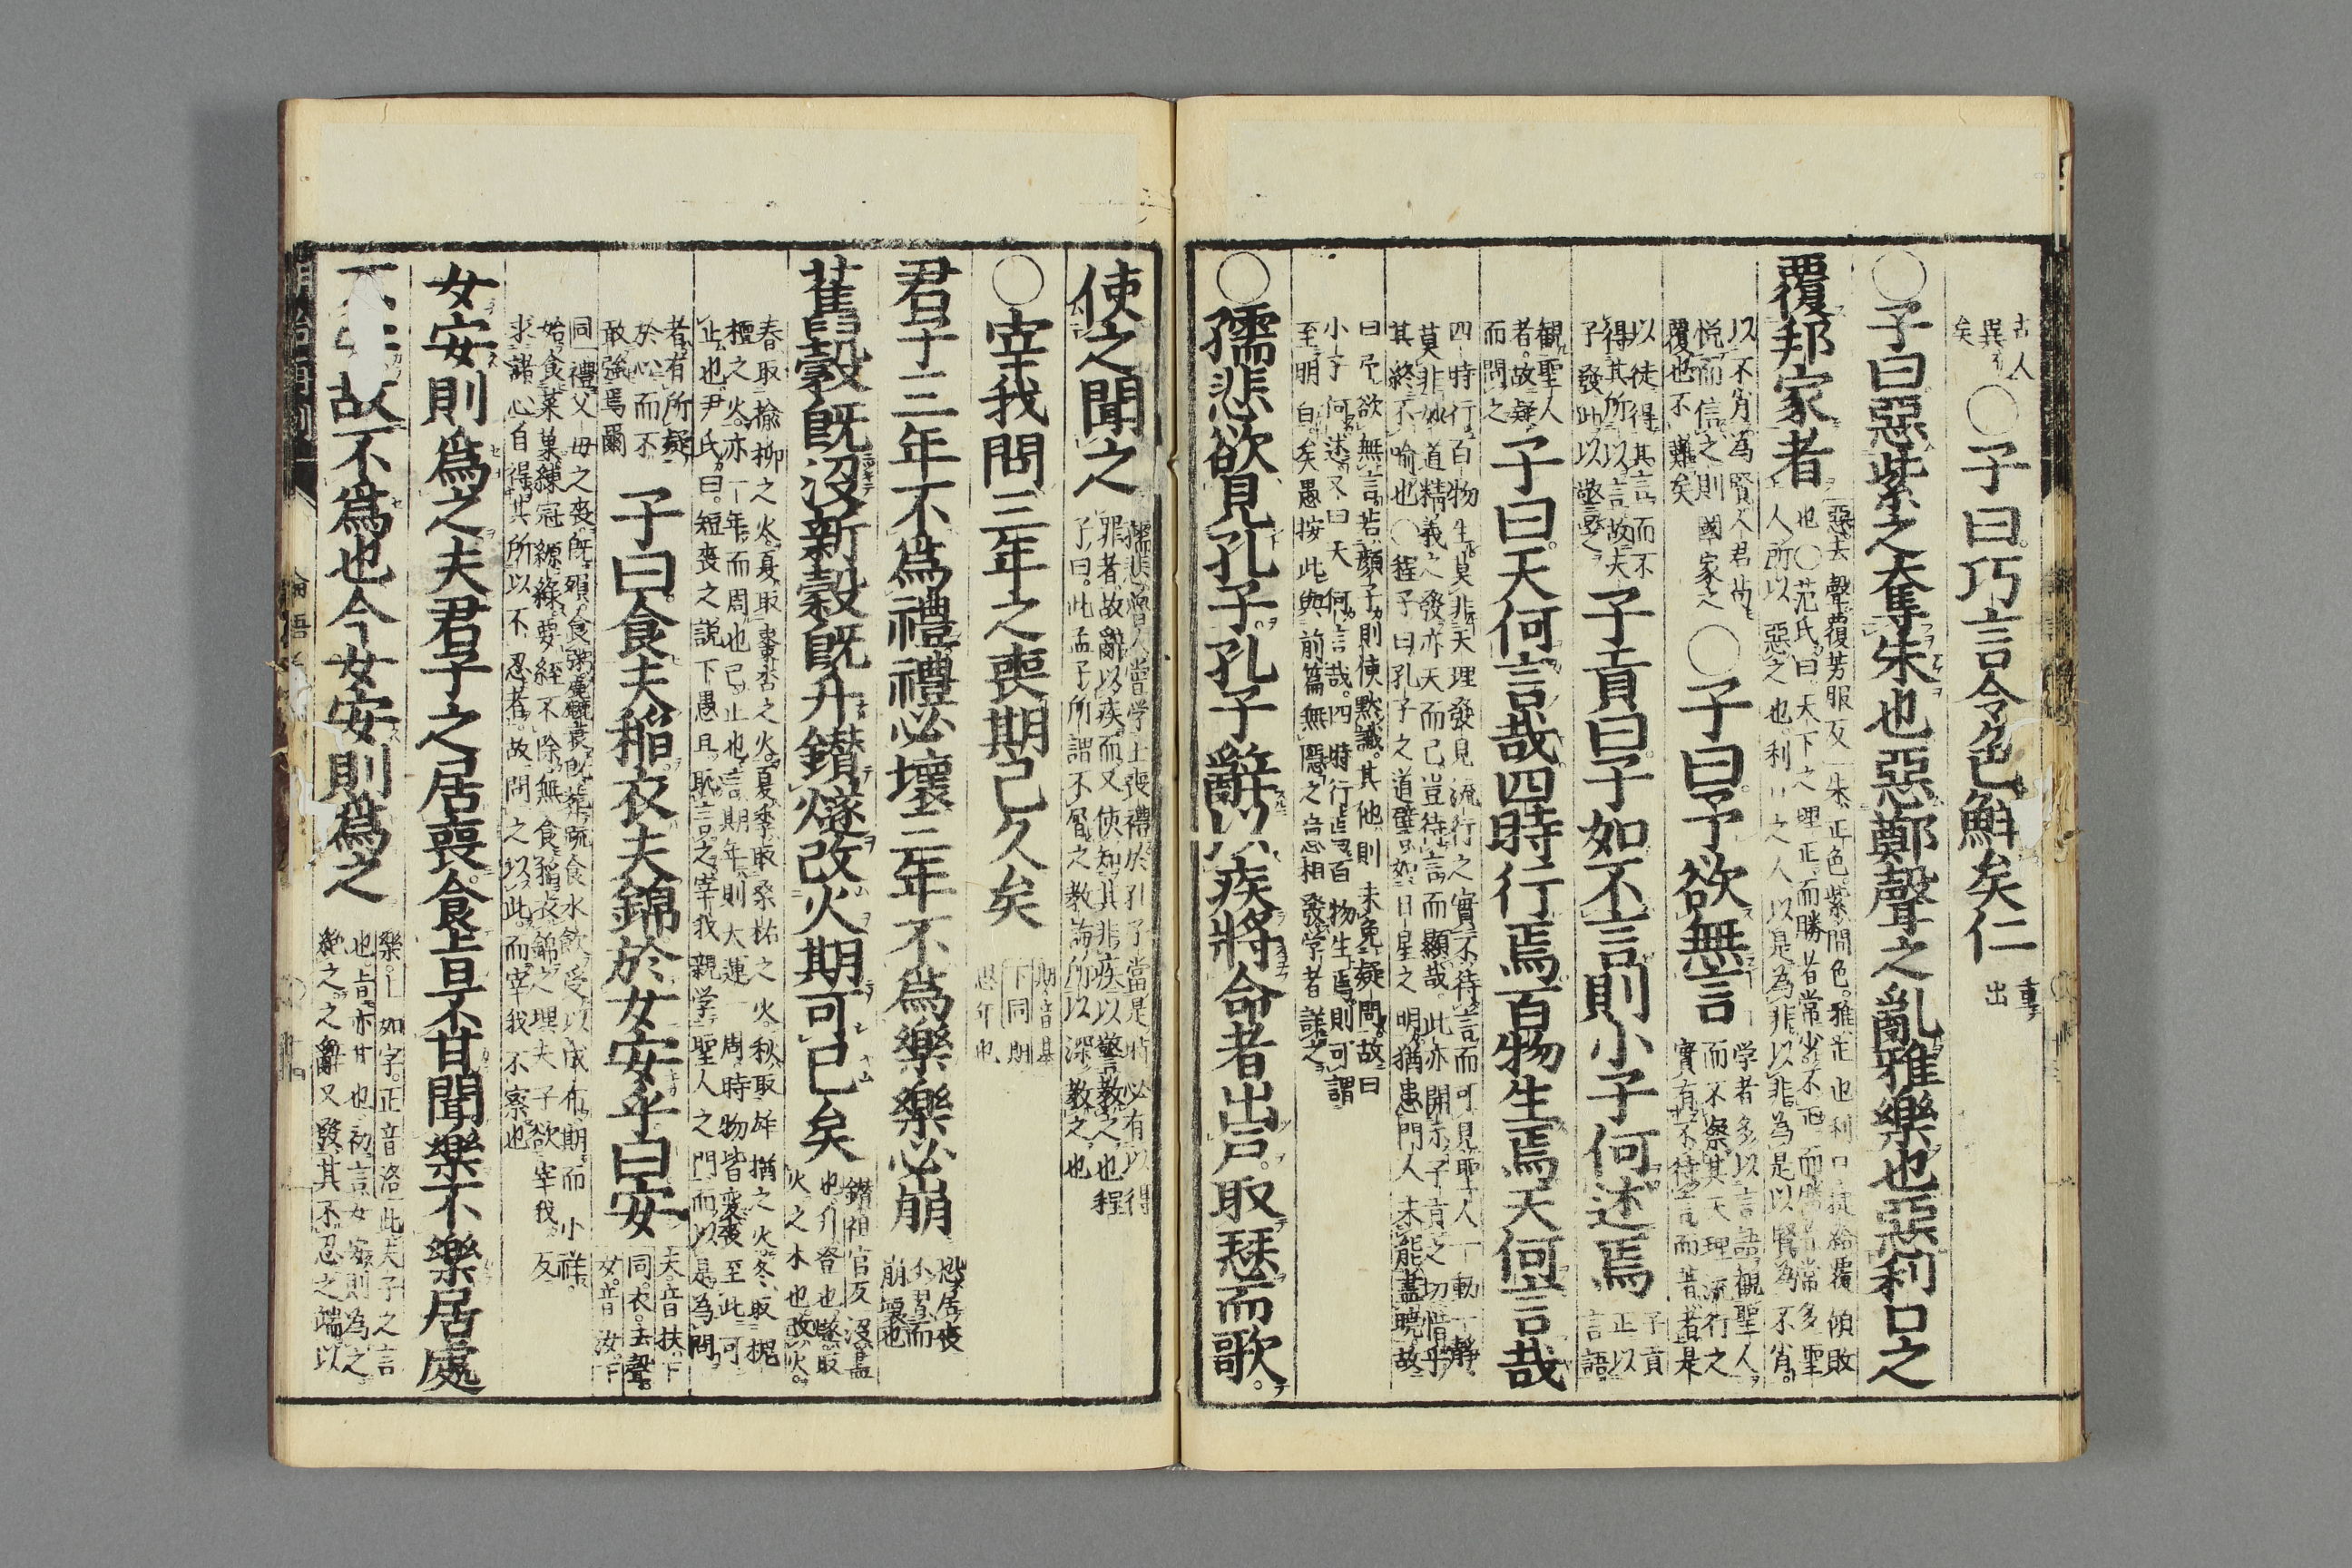 古人
異
矣
〇子曰巧言令色鮮矣仁
重
出
〇子曰惡紫之奪朱也惡鄭聲之亂雅樂也惡利口之
覆邦家者
惡去聲覆芳服反朱正色紫間色雅正也利口捷給覆傾敗
也〇范氏曰天下之理正而勝者常少不正而勝者常多聖
人所以惡之也利口之人以是為非以非為是以賢為不肖
以不肖為賢人君苟
悦而信之則國家之
覆也不難矣
〇子曰予欲無言
学者多以言語觀聖人
而不察其天理流行之
實有不待言而著者是
以徒得其言而不
得其所以言故夫
子發此以警之
子貢曰子如不言則小子何述焉
子貢
正以
言語
觀聖人
者故疑
而問之
子曰天何言哉四時行焉百物生焉天何言哉
四時行百物生莫非天理發見流行之實不待言而可見聖人一動一靜
莫非妙道精義之發亦天而已豈待言而顯哉此亦開示子貢之切惜乎
其終不喻也〇程子曰孔子之道譬如日星之明猶患門人未能盡曉故
曰予欲無言若顏子則便默識其他則未免疑問故曰
小子何述又曰天何言哉四時行焉百物生焉則可謂
至明白矣愚按此與前篇無隱之意相發学者詳之
〇孺悲欲見孔子孔子辭以疾將命者出戸取瑟而歌
使之聞之
孺悲魯人嘗学士喪禮於孔子當是時必有以得
罪者故辭以疾而又使知其非疾以警教之也程
子曰此孟子所謂不屑之教誨所以深教之也
〇宰我問三年之喪期已久矣
期音基
下同期
周年也
君子三年不為禮禮必壞三年不為樂樂必崩
恐居喪
不習而
崩壞也
舊穀既沒新穀既升鑽燧改火期可已矣
鑽祖官反沒盡
也升登也燧取
火之木也改火
春取榆柳之火夏取棗杏之火夏季取桑柘之火秋取柞楢之火冬取槐
檀之火亦一年而周也已止也言期年則天運一周時物皆變喪至此可
止也尹氏曰短喪之説下愚且恥言之宰我親学聖人之門而以是為問
者有所疑
於心而不
敢強焉爾
子曰食夫稻衣夫錦於女安乎曰安
夫音扶下
同衣去聲
女音汝下
同禮父母之喪既殯食粥麤衰既葬疏食水飲受以成布期而小祥
始食菜果練冠縓緣要絰不除無食稻衣錦之理夫子欲宰我反
求諸心自得其所以不忍者故問之以此而宰我不察也
女安則為之夫君子之居喪食旨不甘聞樂不樂居處
不安故不為也今女安則為之
樂上如字正音洛此夫子之言
也旨亦甘也初言女安則為之
絶之之辭又發其不忍之端以